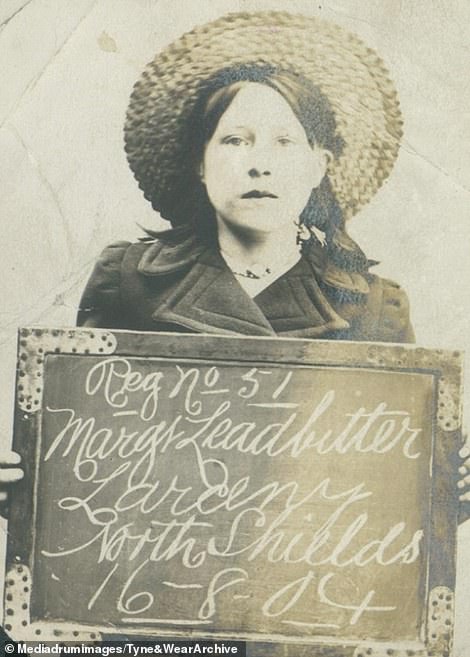 Reg No 51
Margt Leadbitter
Larceny
North Shields
16-8-04
© Mediadrumimages/Tyne&WearArchive